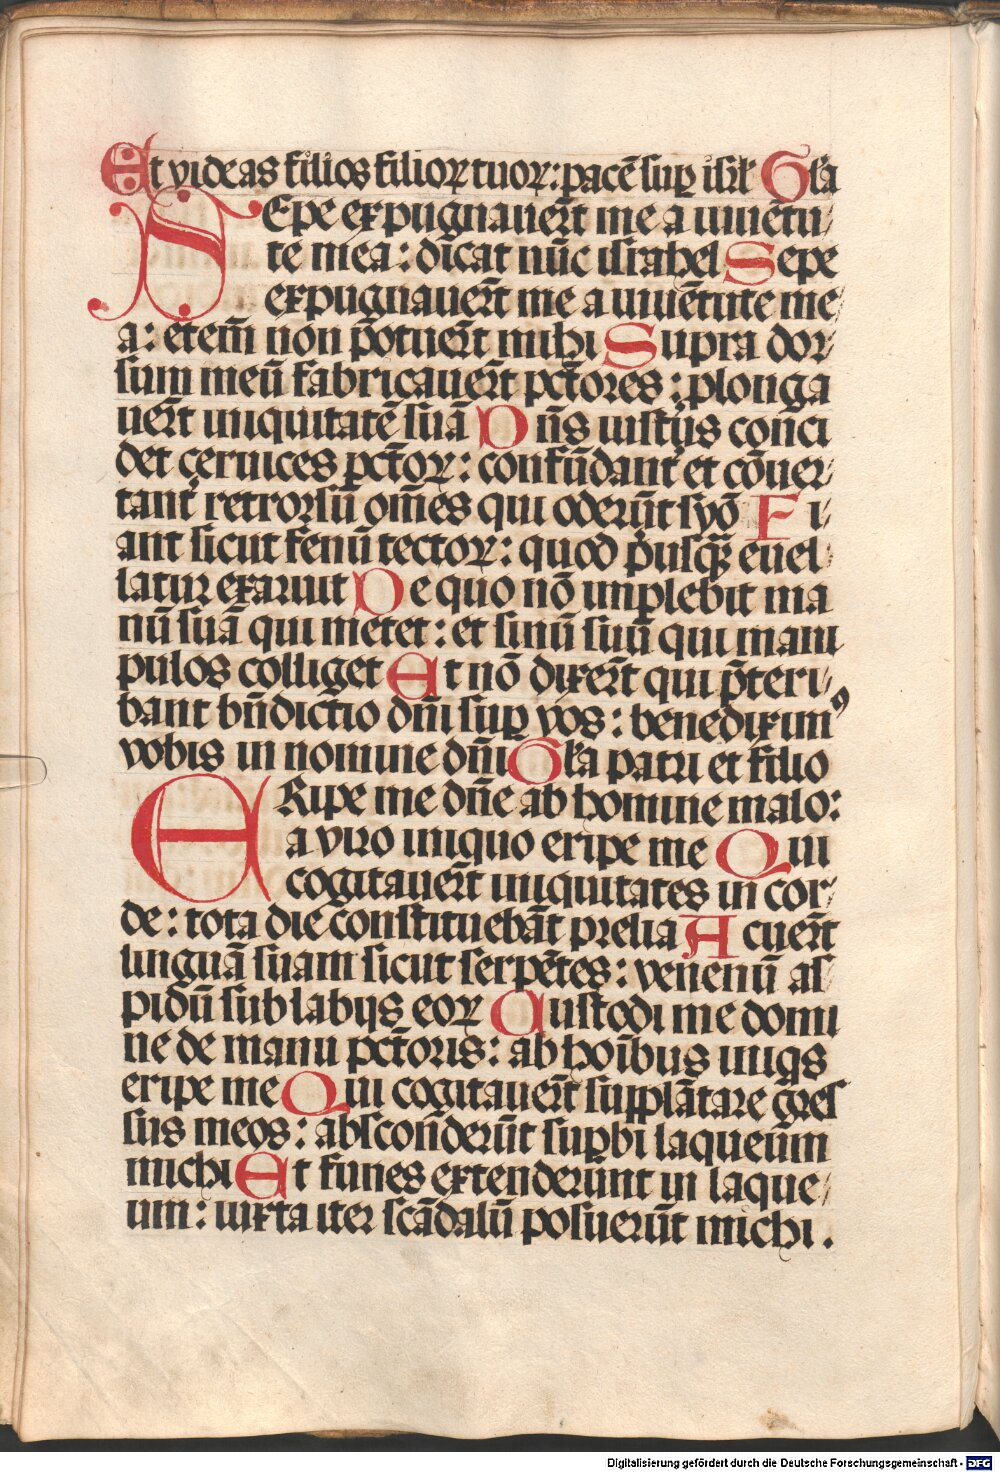 Et videas filios filioꝝ tuoꝝ: pacē suꝑ isrl̄ Gl̄a
SEpe expugnauer̄t me a iuuētu/
te mea: dicat nūc israhel Sepe
expugnauer̄t me a iuuētute me/
a: eteni̅ non potuer̄t mihi Supra dor/
sum meū fabricauer̄t pctōres: ꝓlonga
uer̄t iniquitatē suā Dn̄s iustus conci
det ceruices pctōꝝ: confūdant᷑ et cōuer/
tant᷑ retrorsū om̄es qui oderūt syō Fi/
ant sicut fenū tectoꝝ: quod pusqꝫ euel/
latur exaruit De quo nō impleuit ma
nū suā qui metet: et sinū suū qui mani
pulos colliget Et nō dixer̄t qui p̄teri/
bant bn̄dictio dn̄i suꝑ vos: benediximꝰ
vobis in nomine dn̄i Gl̄a patri et filio
ERipe me dn̄e ab homine malo:
a viro iniquo eripe me Qui
cogitauer̄t iniquitates in cor/
de: tota die constituebāt prelia Acuer̄t
linguā suam sicut serpētes: venenū as/
pidū sub labijs eoꝝ Custodi me domi
ne de manu pctōris: ab hoībus iniqs
eripe me Qui cogitauer̄t supplātare gres
sus meos: absconderūt suꝑbi laqueum
michi Et funes extenderunt in laque/
um: iuxta iter scādalū posuerūt michi.
Digitalisierung gefördert durch die Deutsche Forschungsgemeinschaft - DFG